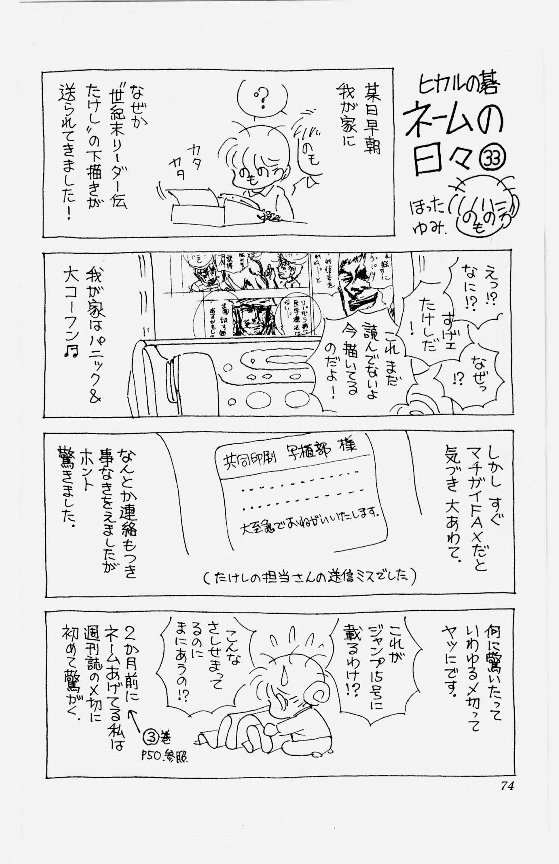 ヒカルの碁
ネームの
日々㉝
ほった
ゆみ
某日早朝
我が家に
?
のもの
カタ
カタ
なぜか
"世紀末リーダー伝
たけし"の下描きが
送られてきました!
えっ!?
なに!?
すげェ
たけしだ
!
なぜっ
!?
これまだ
読んでないよ
今描いてる
のだよ!
我が家はパニック&
大コーフン♬
しかし すぐ
マチガイFAXだと
気づき 大あわて.
共同印刷 写植部 様
大至急でおねがいいたします.
(たけしの担当さんの送信ミスでした)
なんとか連絡もつき
事なきをえましたが
ホント
驚きました.
何に驚いたって
いわゆる〆切って
ヤツにです.
これが
ジャンプ15号に
載るわけ!?
こんな
さしせまって
るのに
まにあうの!?
2か月前に
ネームあげてる私は
週刊誌の〆切に
初めて驚がく.
③巻
P50.参照
74